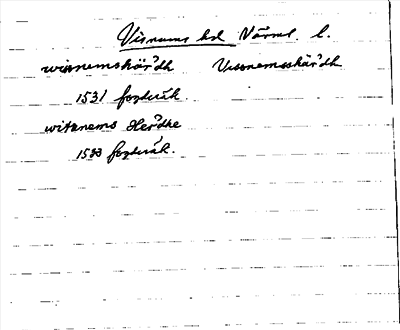 Visnums hd Värml. l.
wisnemshärdh Vissnemsshärdh
1531 fogderäk.
witznems Herdhe
1533 fogderäk.